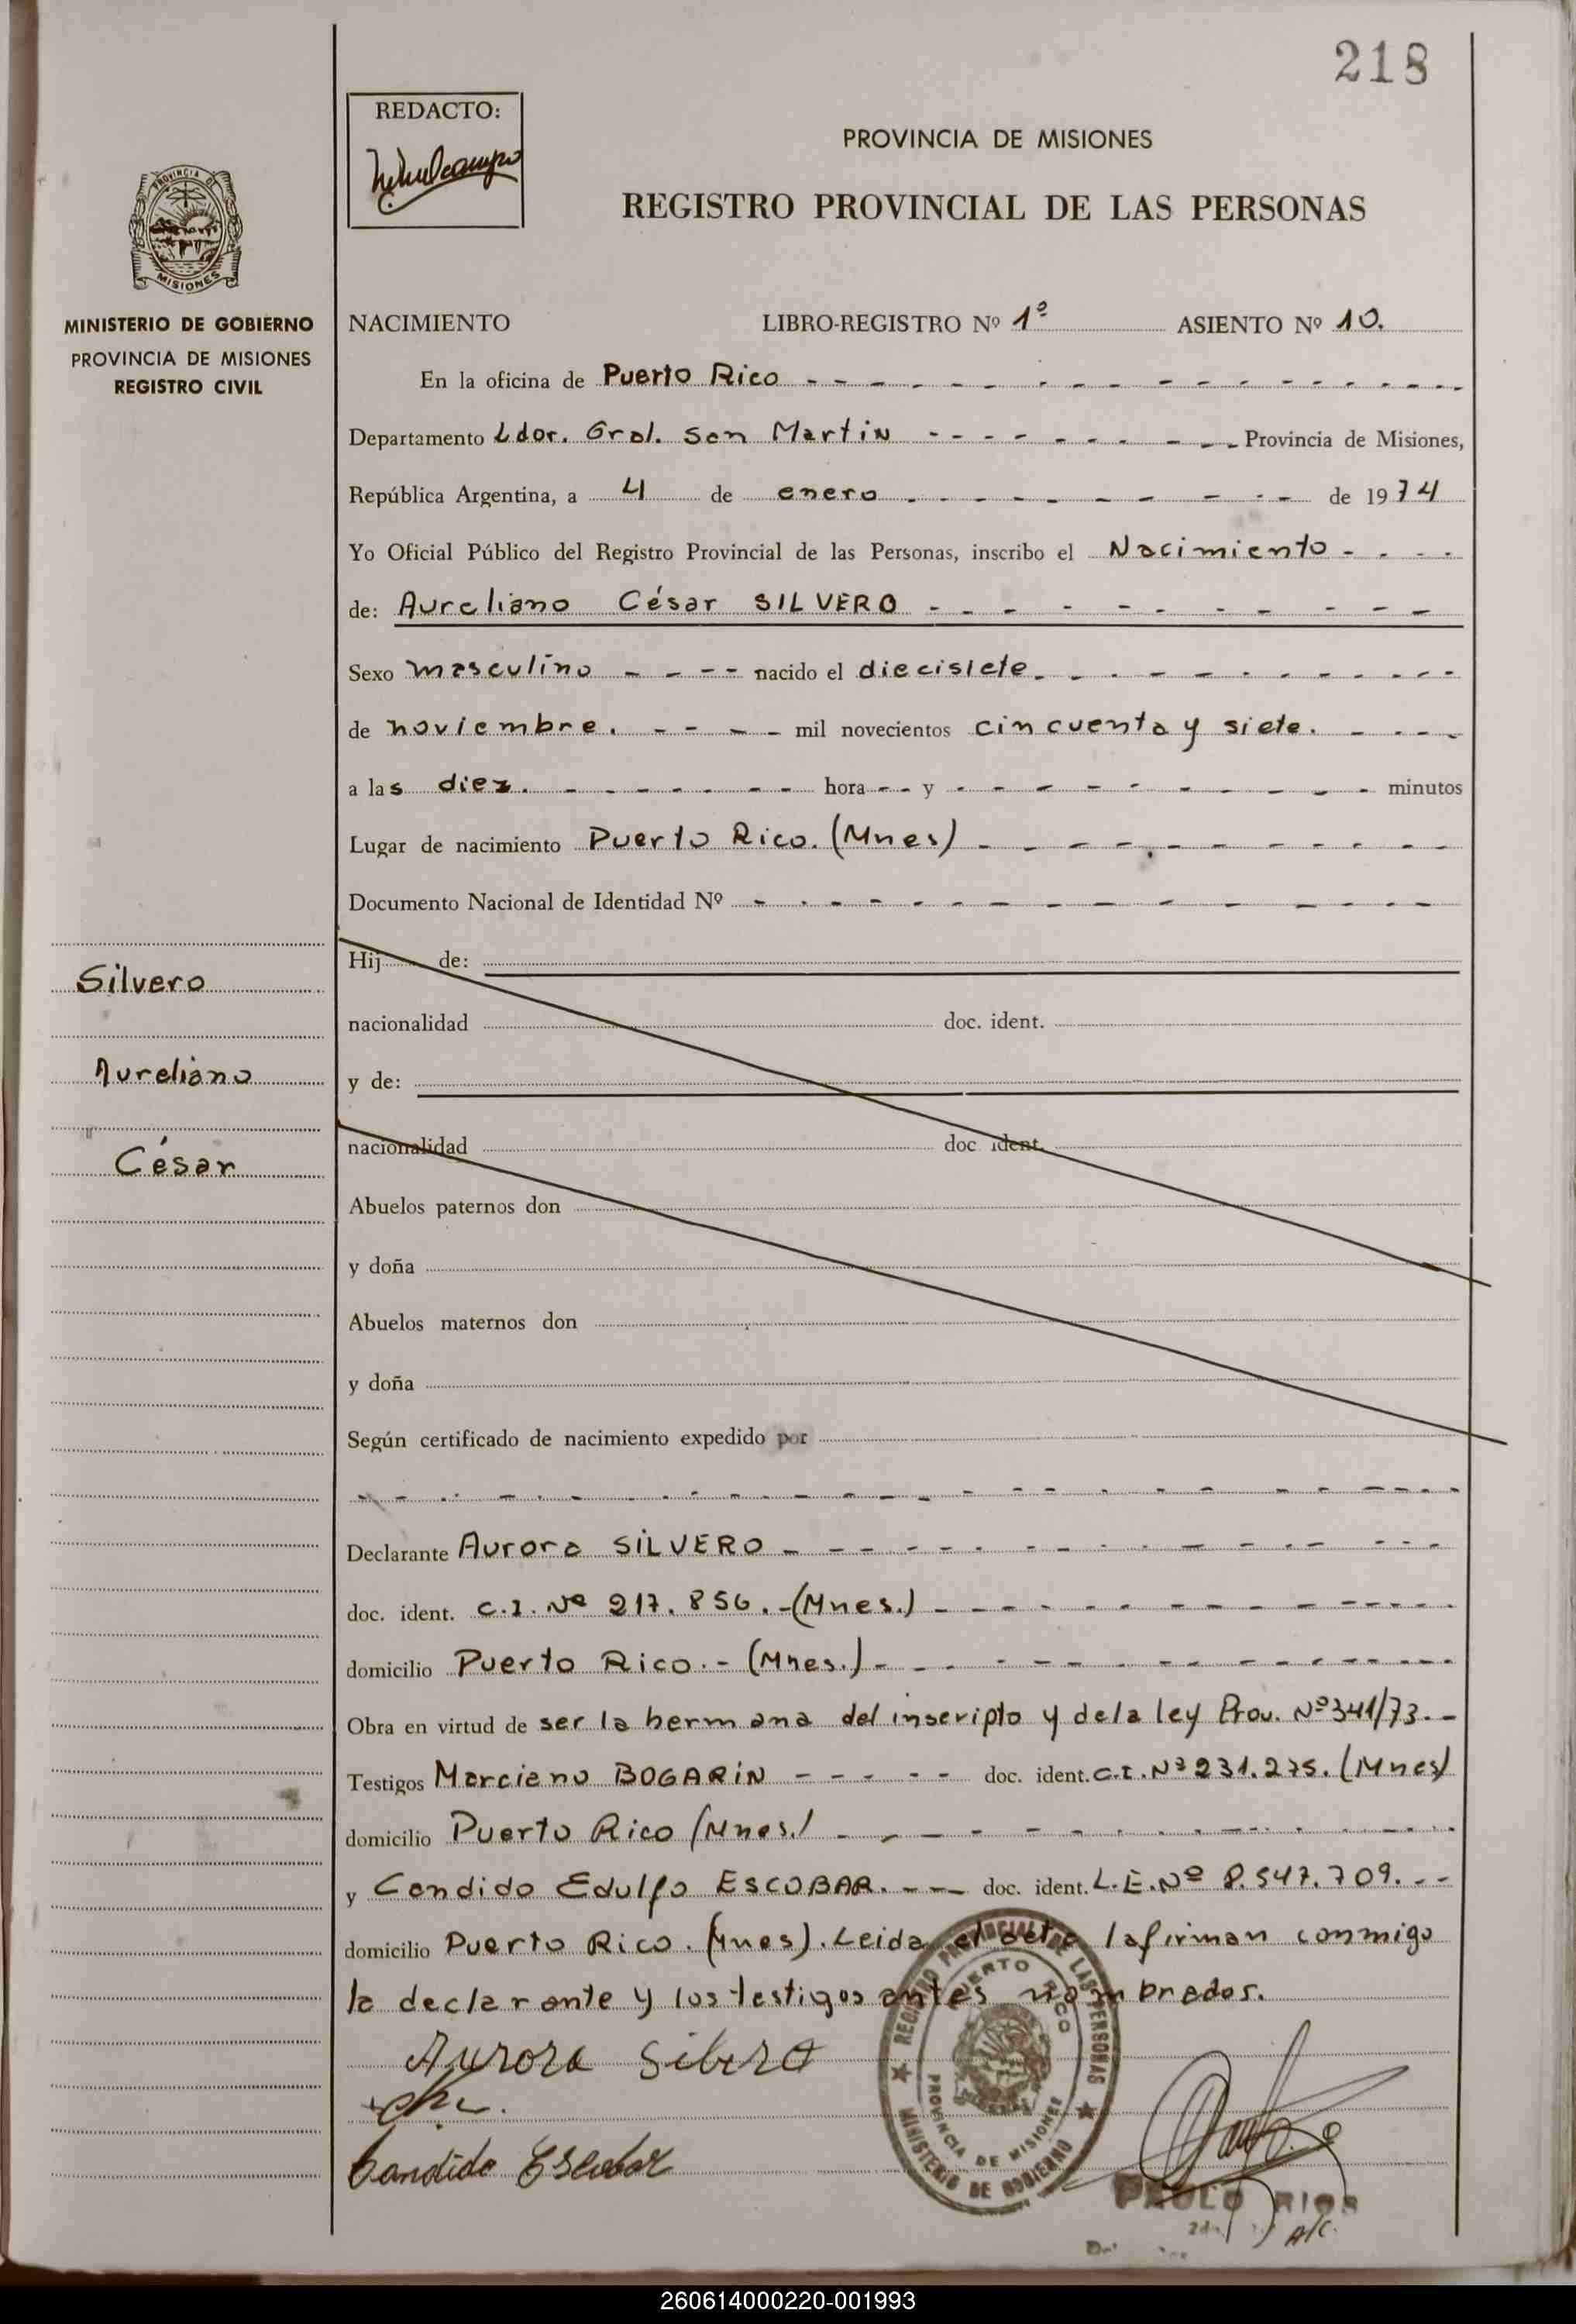 218
REDACTO:
PROVINCIA DE MISIONES
REGISTRO PROVINCIAL DE LAS PERSONAS
PROVINCIA DE
MISIONES
MINISTERIO DE GOBIERNO
PROVINCIA DE MISIONES
REGISTRO CIVIL
NACIMIENTO LIBRO-REGISTRO Nº 1º ASIENTO Nº 10.
En la oficina de Puerto Rico
Departamento Ldor. Gral. San Martin Provincia de Misiones,
República Argentina, a 4 de enero de 1974
Yo Oficial Público del Registro Provincial de las Personas, inscribo el Nacimiento
de: Aureliano César SILVERO
Sexo masculino nacido el diecisiete.
de noviembre. mil novecientos cincuenta y siete.
a las diez. hora y minutos
Lugar de nacimiento Puerto Rico. (Mnes)
Documento Nacional de Identidad Nº
Hij de:
Silvero
nacionalidad doc. ident.
Aureliano
y de:
César
nacionalidad doc ident.
Abuelos paternos don
y doña
Abuelos maternos don
y doña
Según certificado de nacimiento expedido por
Declarante Aurora SILVERO
doc. ident. C.I. Nº 217.856.-(Mnes.)
domicilio Puerto Rico.- (Mnes.)
Obra en virtud de ser la hermana del inscripto y de la ley Prov. Nº 341/73.-
Testigos Marciano BOGARIN doc. ident. C.I. Nº 231.275. (Mnes)
domicilio Puerto Rico (Mnes.)
y Candido Edulfo ESCOBAR. doc. ident. L.E. Nº 8.547.709.--
domicilio Puerto Rico. (Mnes). Leida el acta la firman conmigo
la declarante y los testigos antes nombrados.
Aurora Silvero
Candido Escobar
REGISTRO PROVINCIAL DE LAS PERSONAS
PUERTO RICO
PROVINCIA DE MISIONES
MINISTERIO DE GOBIERNO
PAULO RIOS
A/C.
260614000220-001993